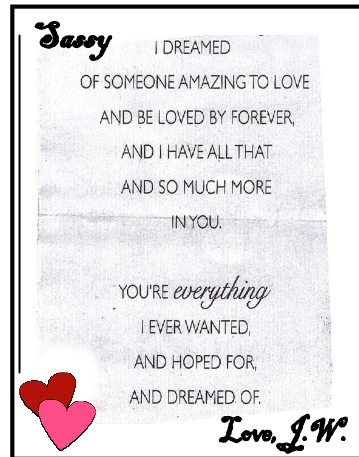 Sassy
I DREAMED
OF SOMEONE AMAZING TO LOVE
AND BE LOVED BY FOREVER,
AND I HAVE ALL THAT
AND SO MUCH MORE
IN YOU.
YOU'RE everything
I EVER WANTED,
AND HOPED FOR,
AND DREAMED OF.
Love, J.W.